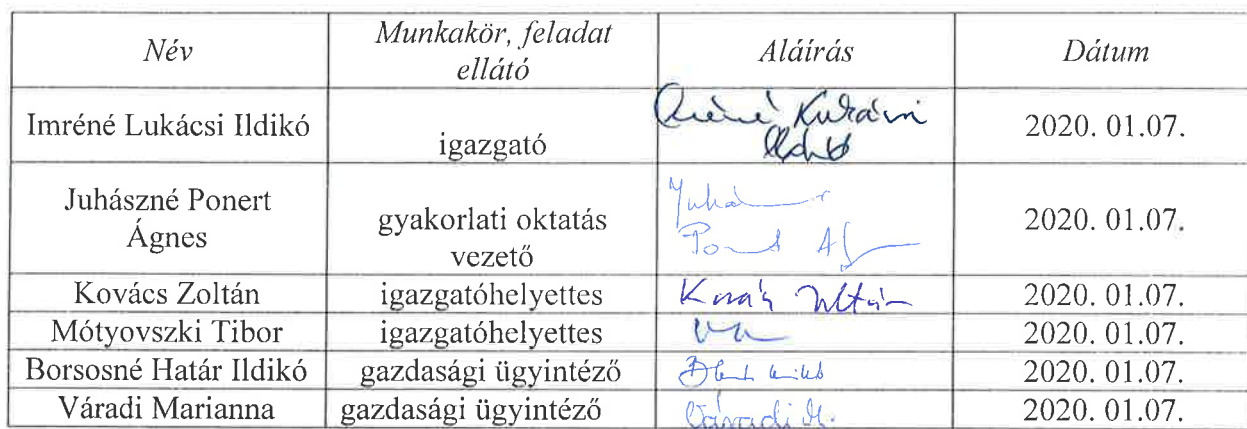 Név Munkakör, feladat ellátó Aláírás Dátum
Imréné Lukácsi Ildikó igazgató 2020. 01.07.
Juhászné Ponert Ágnes gyakorlati oktatás vezető 2020. 01.07.
Kovács Zoltán igazgatóhelyettes Kovács Zoltán 2020. 01.07.
Mótyovszki Tibor igazgatóhelyettes 2020. 01.07.
Borsosné Határ Ildikó gazdasági ügyintéző 2020. 01.07.
Váradi Marianna gazdasági ügyintéző Váradi M. 2020. 01.07.